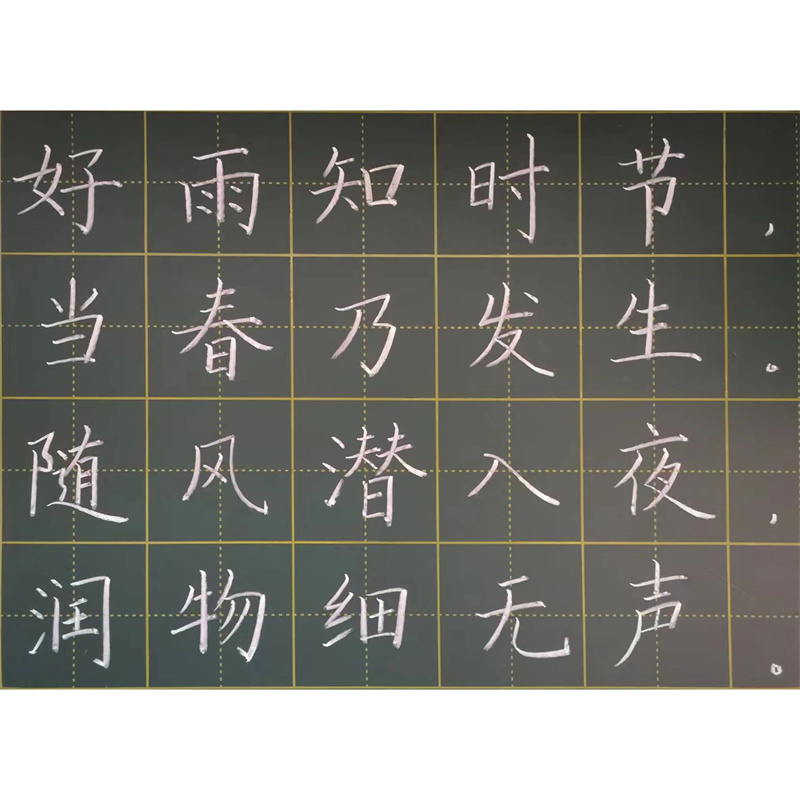 好雨知时节，
当春乃发生。
随风潜入夜，
润物细无声。